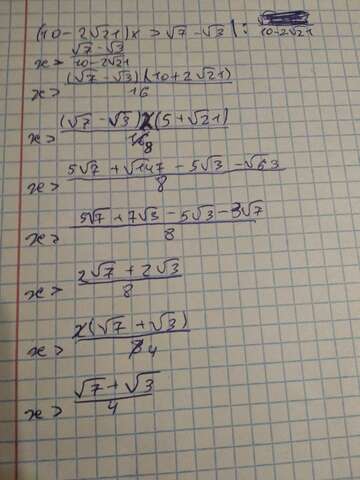 (10 - 2√21)x > √7 - √3 | : 10-2√21
x > (√7 - √3)/(10 - 2√21)
x > (√7 - √3)(10 + 2√21)/16
x > (√7 - √3)2(5 + √21)/16 8
x > (5√7 + √147 - 5√3 - √63)/8
x > (5√7 + 7√3 - 5√3 - 3√7)/8
x > (2√7 + 2√3)/8
x > 2(√7 + √3)/8 4
x > (√7 + √3)/4